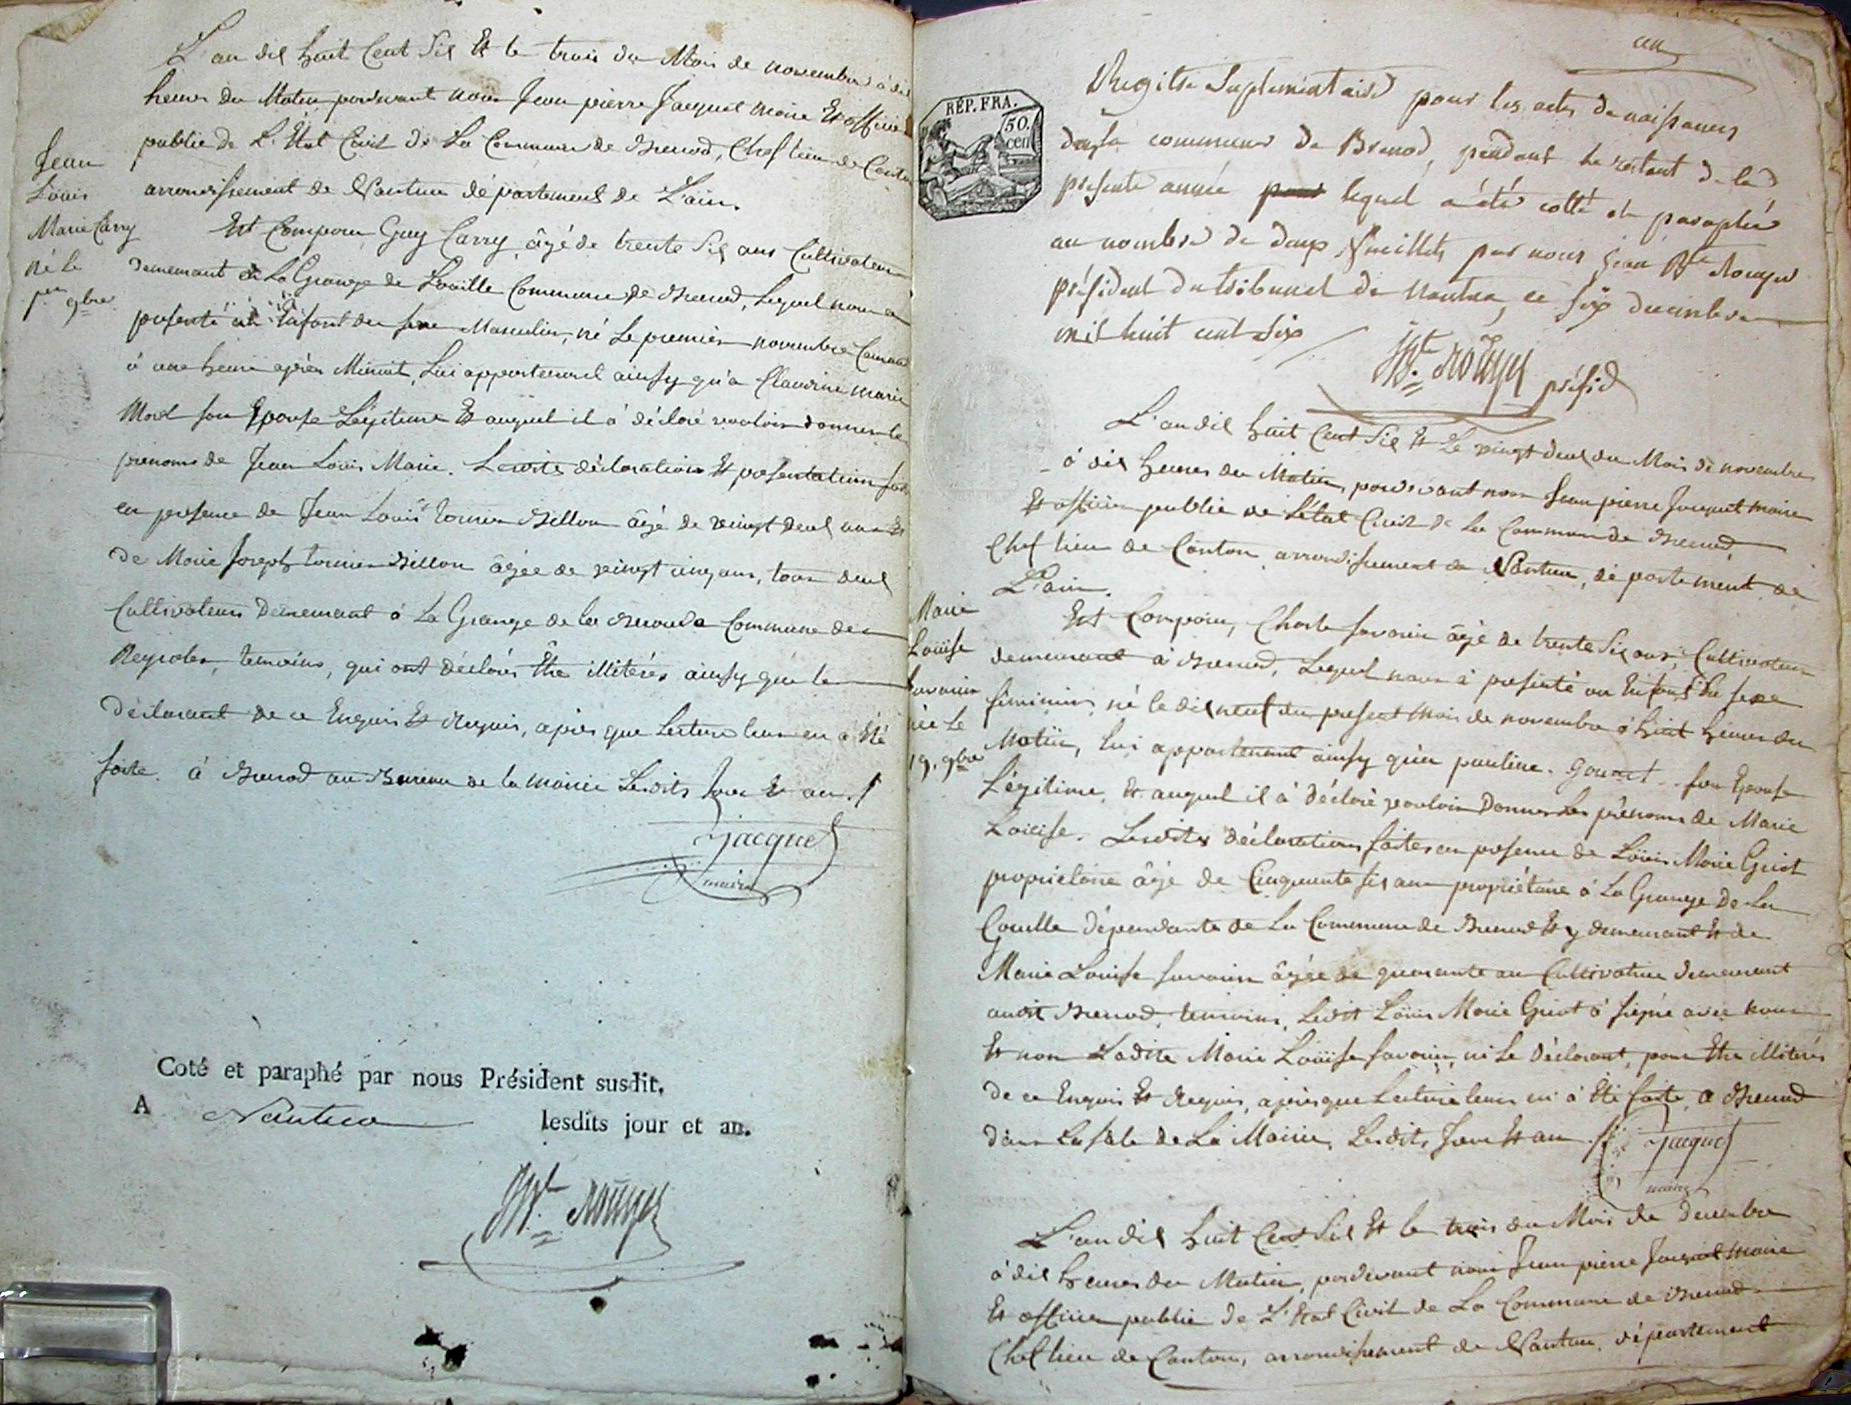 L'an dix huit Cent Six Et le trois du Mois de novembre à dix
heures du Matin pardevant nous Jean pierre Jacquet maire Et officier
public de L'État Civil de La Commune de Brenod, Chef lieu de Canton
arrondissement de Nantua département de L'ain.
Jean
Louis
Marie Carry
né le
per 9bre
Est Comparu Guy Carry, âgé de trente Six ans Cultivateur
demeurant à La Grange de Commune de Brenod, Lequel nous a
présenté un Enfant du sexe Masculin, né Le premier novembre Courant
à une heure après Minuit, Lui appartenant ainsy qu'à Claudine marie
son Epouse Légitime Et auquel il à déclaré vouloir donner les
prenoms de Jean Louis Marie. Lesdites déclaration Et présentation faites
en présence de Jean Louis Billon âgé de vingt deux ans Et
de Marie Joseph Billon âgée de vingt cinq ans, tous deux
Cultivateurs Demeurant à La Grange de la Commune de
temoins, qui ont déclarés Être illitérés ainsy que le
déclarant de ce Enquis Et Requis, après que Lecture leur en à Eté
faite. à Brenod au Bureau de la mairie Lesdits Jour Et an.
Jacquet
maire
Coté et paraphé par nous Président susdit,
A Nantua lesdits jour et an.
JBte Rouyer
un
RÉP. FRA.
50.
cen
Regitre Suplementaire pour les actes de naissances
de la commune de Brenod, pendant le restant de la
présente année lequel a été cotté et paraphé
au nombre de deux feuillets par nous Jean Bte Rouyer
président du tribunal de nantua, ce six decembre
mil huit cent six
JBte Rouyer présid
L'an dix huit Cent Six Et Le vingt deux du Mois de novembre
à dix heures du Matin, pardevant nous Jean pierre Jacquet maire
Et officier public de L'état Civil de La Commune de Brenod,
Chef lieu de Canton arrondissement de Nantua, département de
L'ain.
Marie
Louise
Savarin
née Le
19. 9bre
Est Comparu, Charle Savarin âgé de trente Six ans, Cultivateur
demeurant à Brenod, Lequel nous à présenté un Enfant du sexe
feminin, né le dix neuf du présent Mois de novembre à huit heures du
Matin, Lui appartenant ainsy qu'à pauline. son Epouse
Légitime, Et auquel il à déclaré vouloir Donner Les prénoms de Marie
Loüise. Lesdites déclarations faites en présence de Loüis Marie Griot
propriétaire âgé de Cinquante six ans propriétaire à La Grange De La
Gouille Dépendante de La Commune de Brenod Et y demeurant Et de
Marie Louise Savarin âgée de quarante ans Cultivatrice demeurant
audit Brenod, temoins, Ledit Loüis Marie Griot à signé avec nous
Et non Ladite Marie Loüise Savarin, ni le Déclarant, pour Etre illitérés
de ce Enquis Et Requis, après que Lecture leur en à Eté faite, a Brenod
dans La sale de La Mairie, Lesdits Jour Et an.
Jacquet
maire
L'an dix huit Cent Six Et le trois du Mois de Decembre
à dix heures du Matin, pardevant nous Jean pierre Jacquet maire
Et officier public de L'Etat Civil de La Commune de Brenod
Chef lieu de Canton, arrondissement de Nantua, département